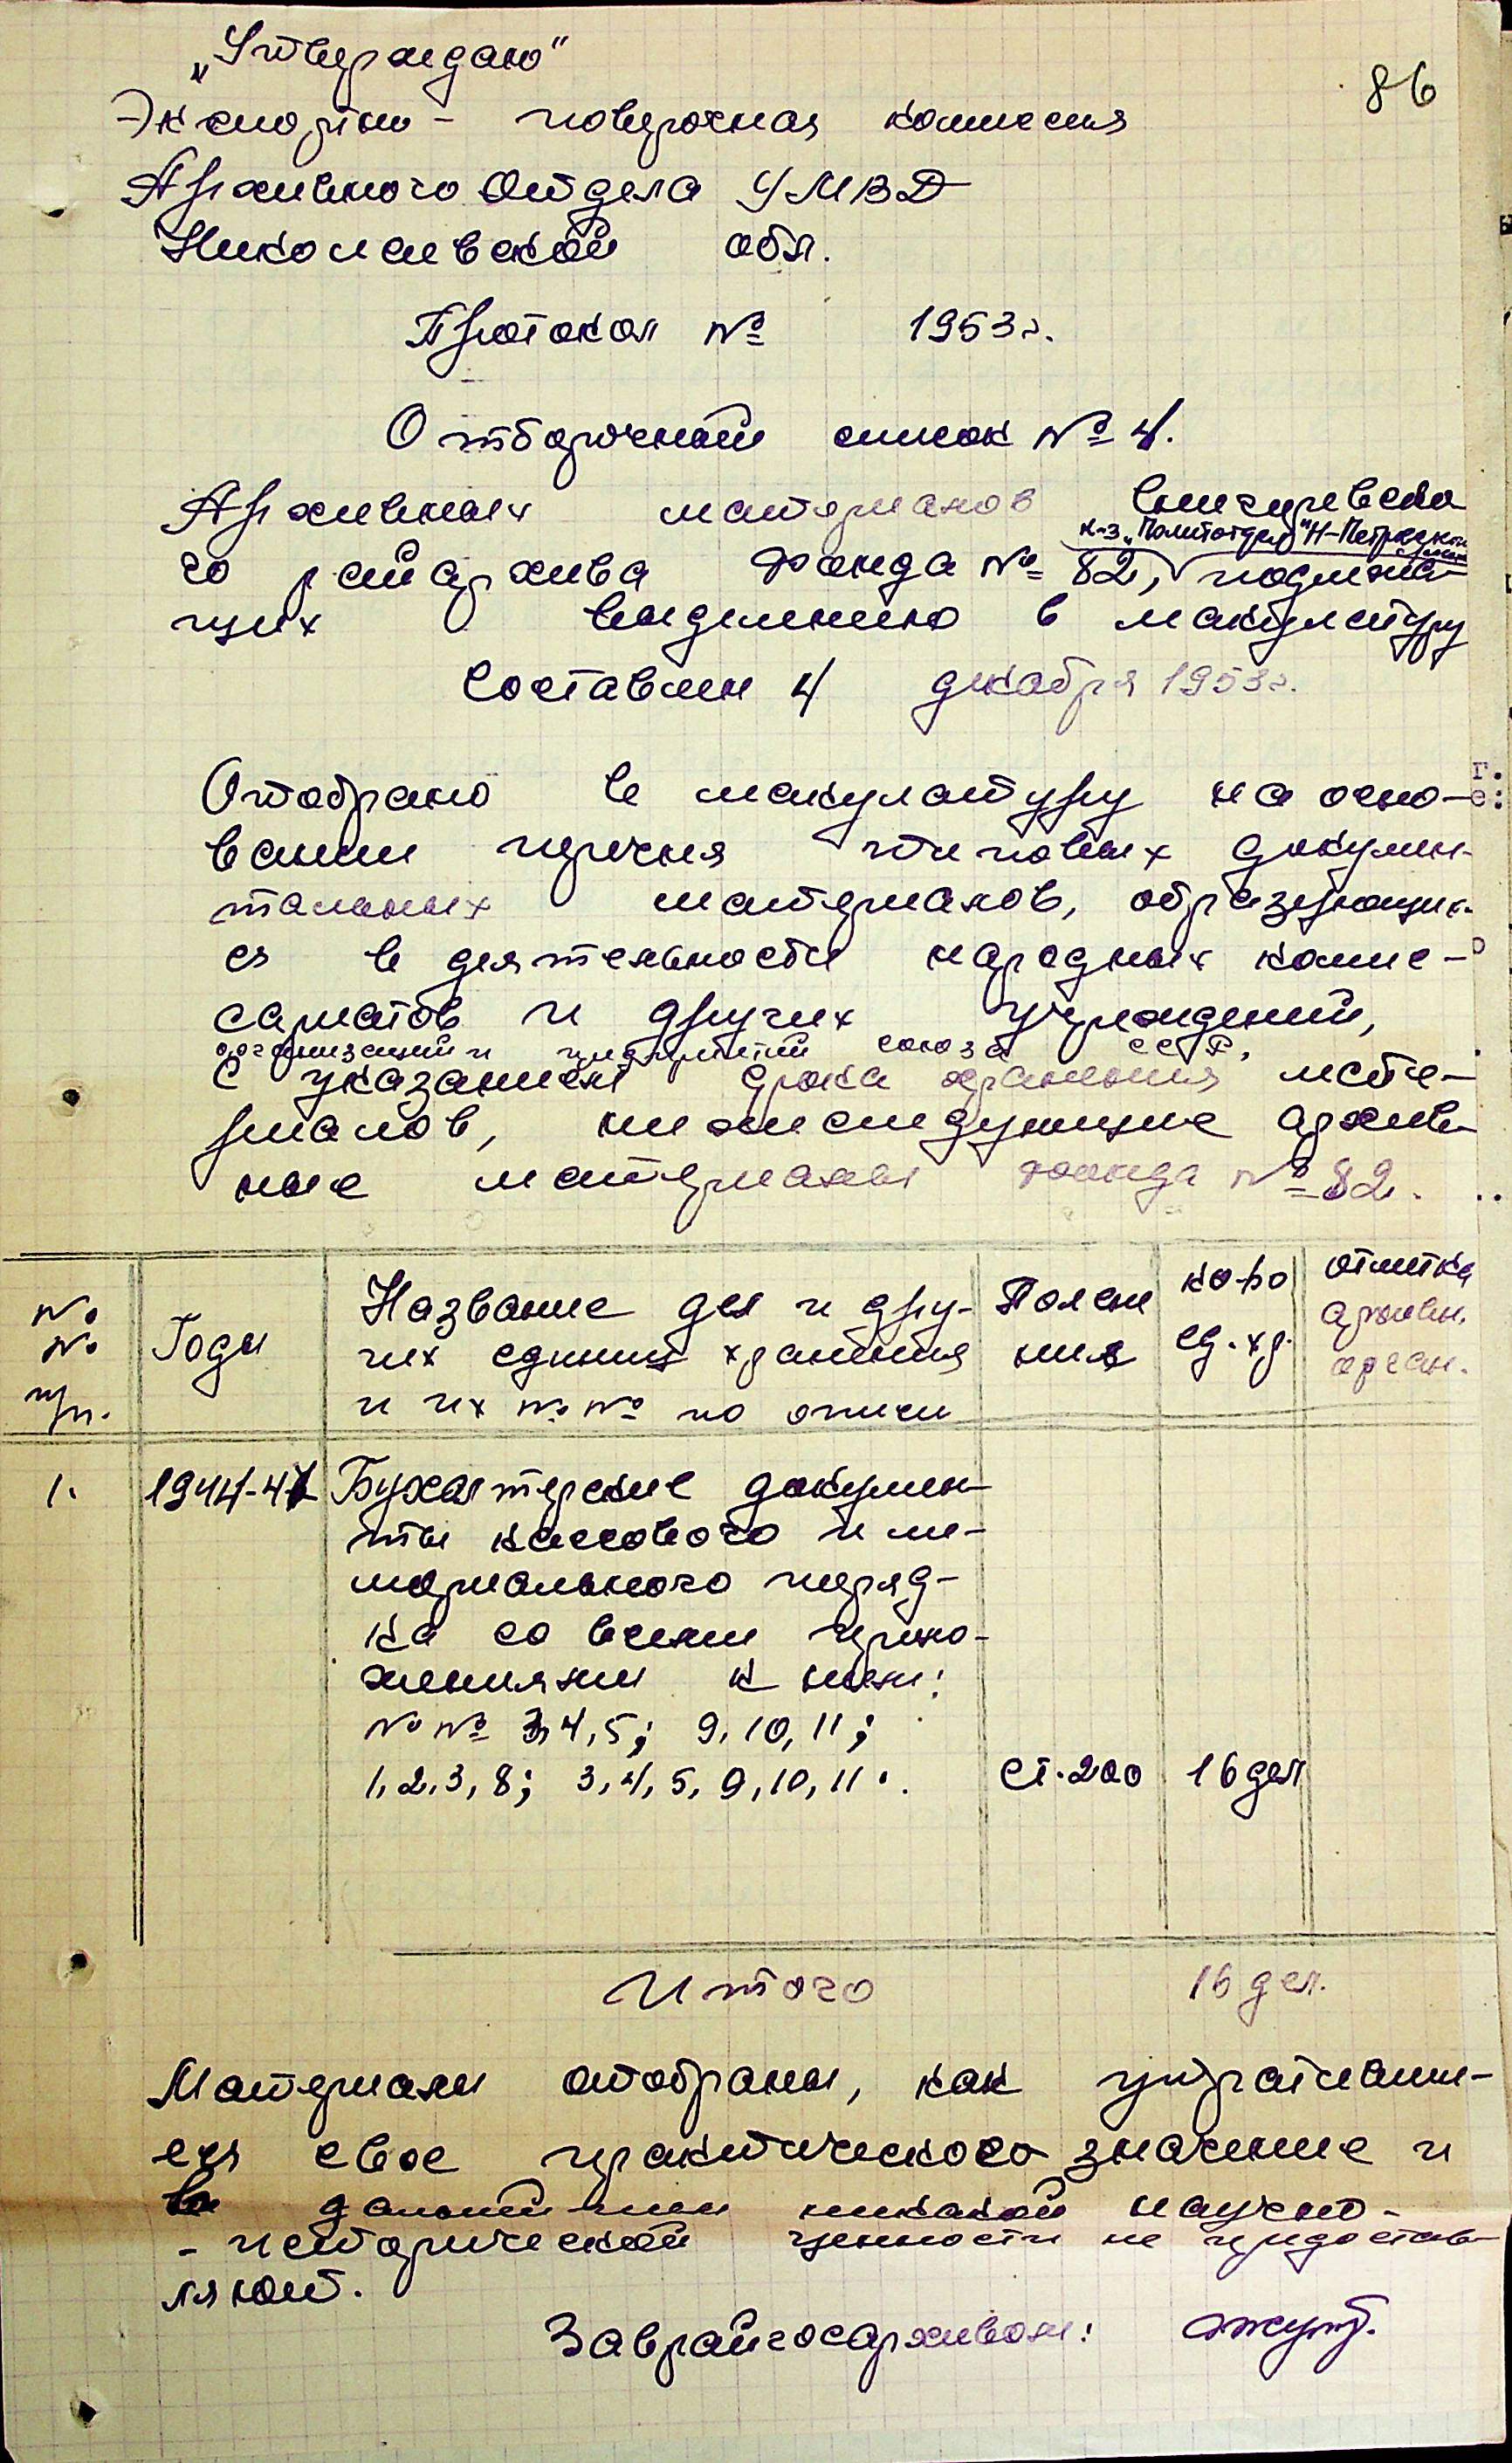 „Утверждаю"
86
Экспертно - поверочная комиссия
Архивного Отдела УМВД
Николаевской обл.
Протокол № 1953г.
Отборочный список № 4.
Архивных материалов Снигиревско
к-з „Политотдел" Н-Петровско
го райархива Фонда № 82, подлежа-
щих выделению в макулатуру
Составлен 4 декабря 1953г.
Отобрано в макулатуру на осно-
вании перечня типовых докумен-
тальных материалов, образующих-
ся в деятельности народных комис-
сариатов и других учреждений,
организаций и предприятий союза ССР,
с указанием срока хранения мате-
риалов, нижеследующие архив-
ные материалы фонда № 82.
№ № п/п. Годы Название дел и дру- Поясне кол-во отметка
гих единиц хранения ния ед. хр. архивн.
и их № № по описи орган.
1. 1944-47 Бухгалтерские докумен-
ты кассового и ме-
мориального поряд-
ка со всеми прило-
жениями к ним:
№ № 3, 4, 5; 9, 10, 11;
1, 2, 3, 8; 3, 4, 5, 9, 10, 11. ст. 200 16 дел
Итого 16 дел.
Материалы отобраны, как утратившие-
ся свое практического значение и
в дальнейшем никакой научно-
- исторической ценности не предостав-
ляют.
Заврайгосархивом: